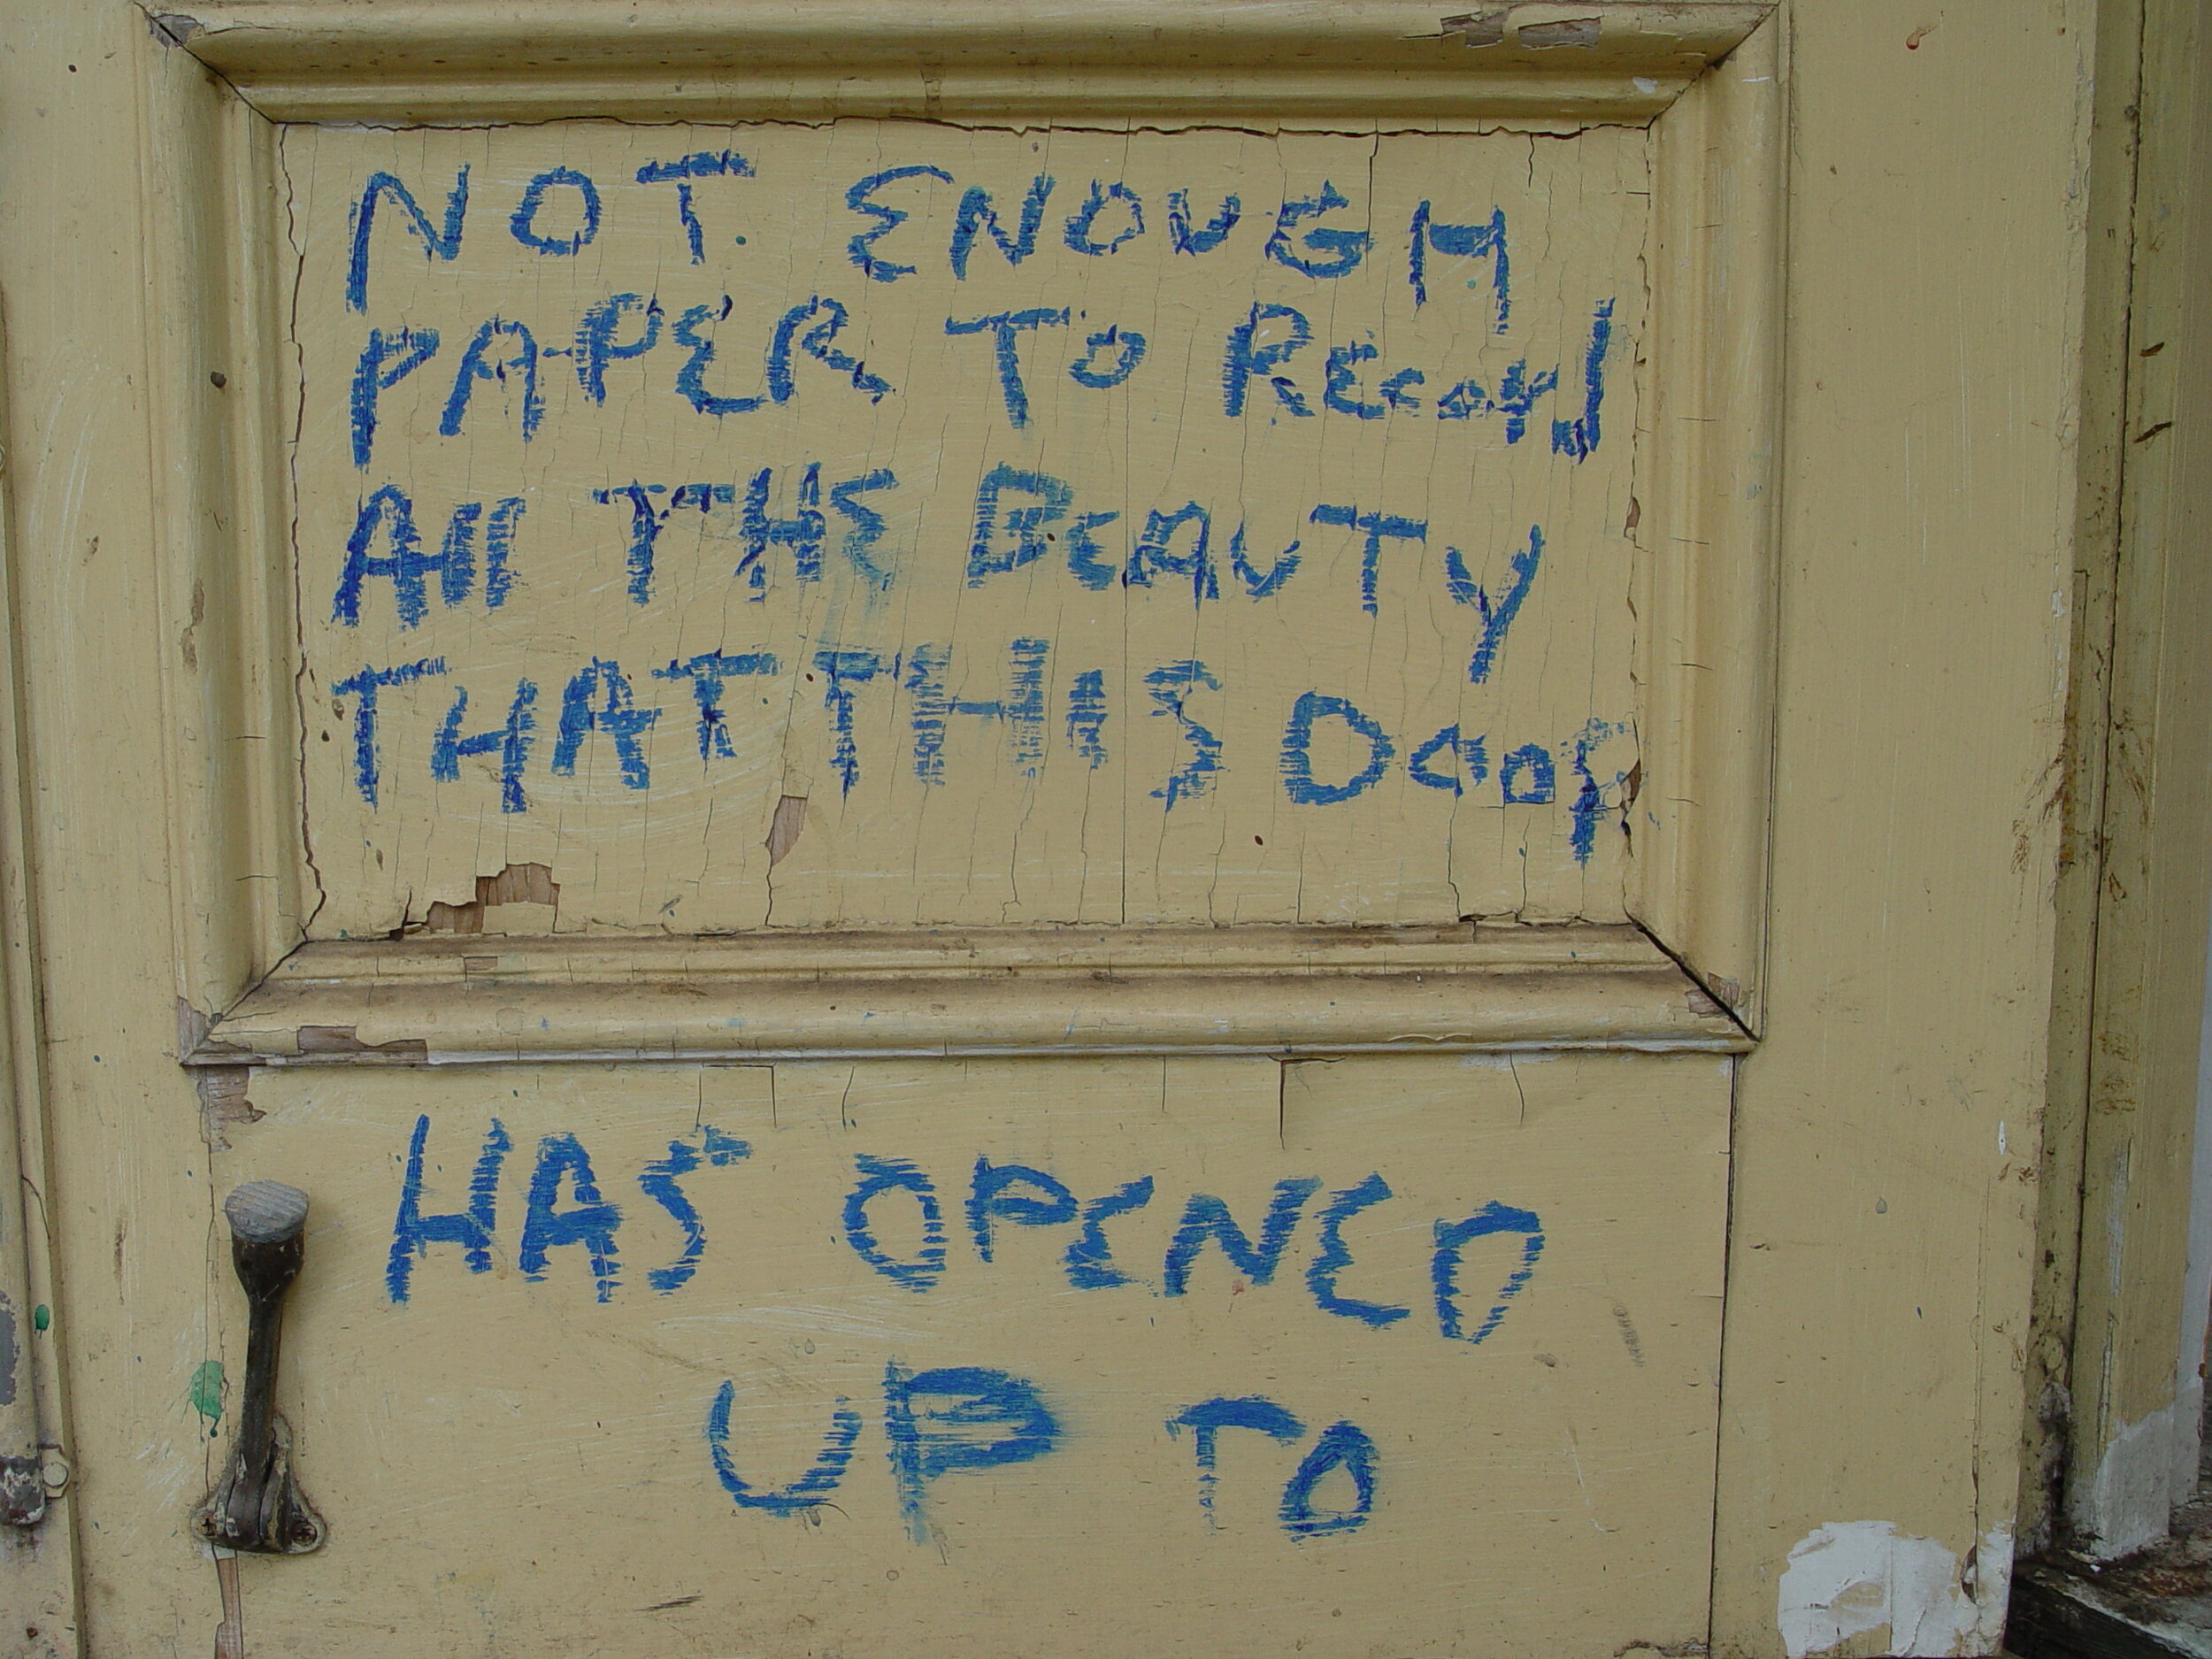 NOT ENOUGH
PAPER TO RECORd
All THE BEAUTY
THAT THIS Door
HAS OPENED
UP TO